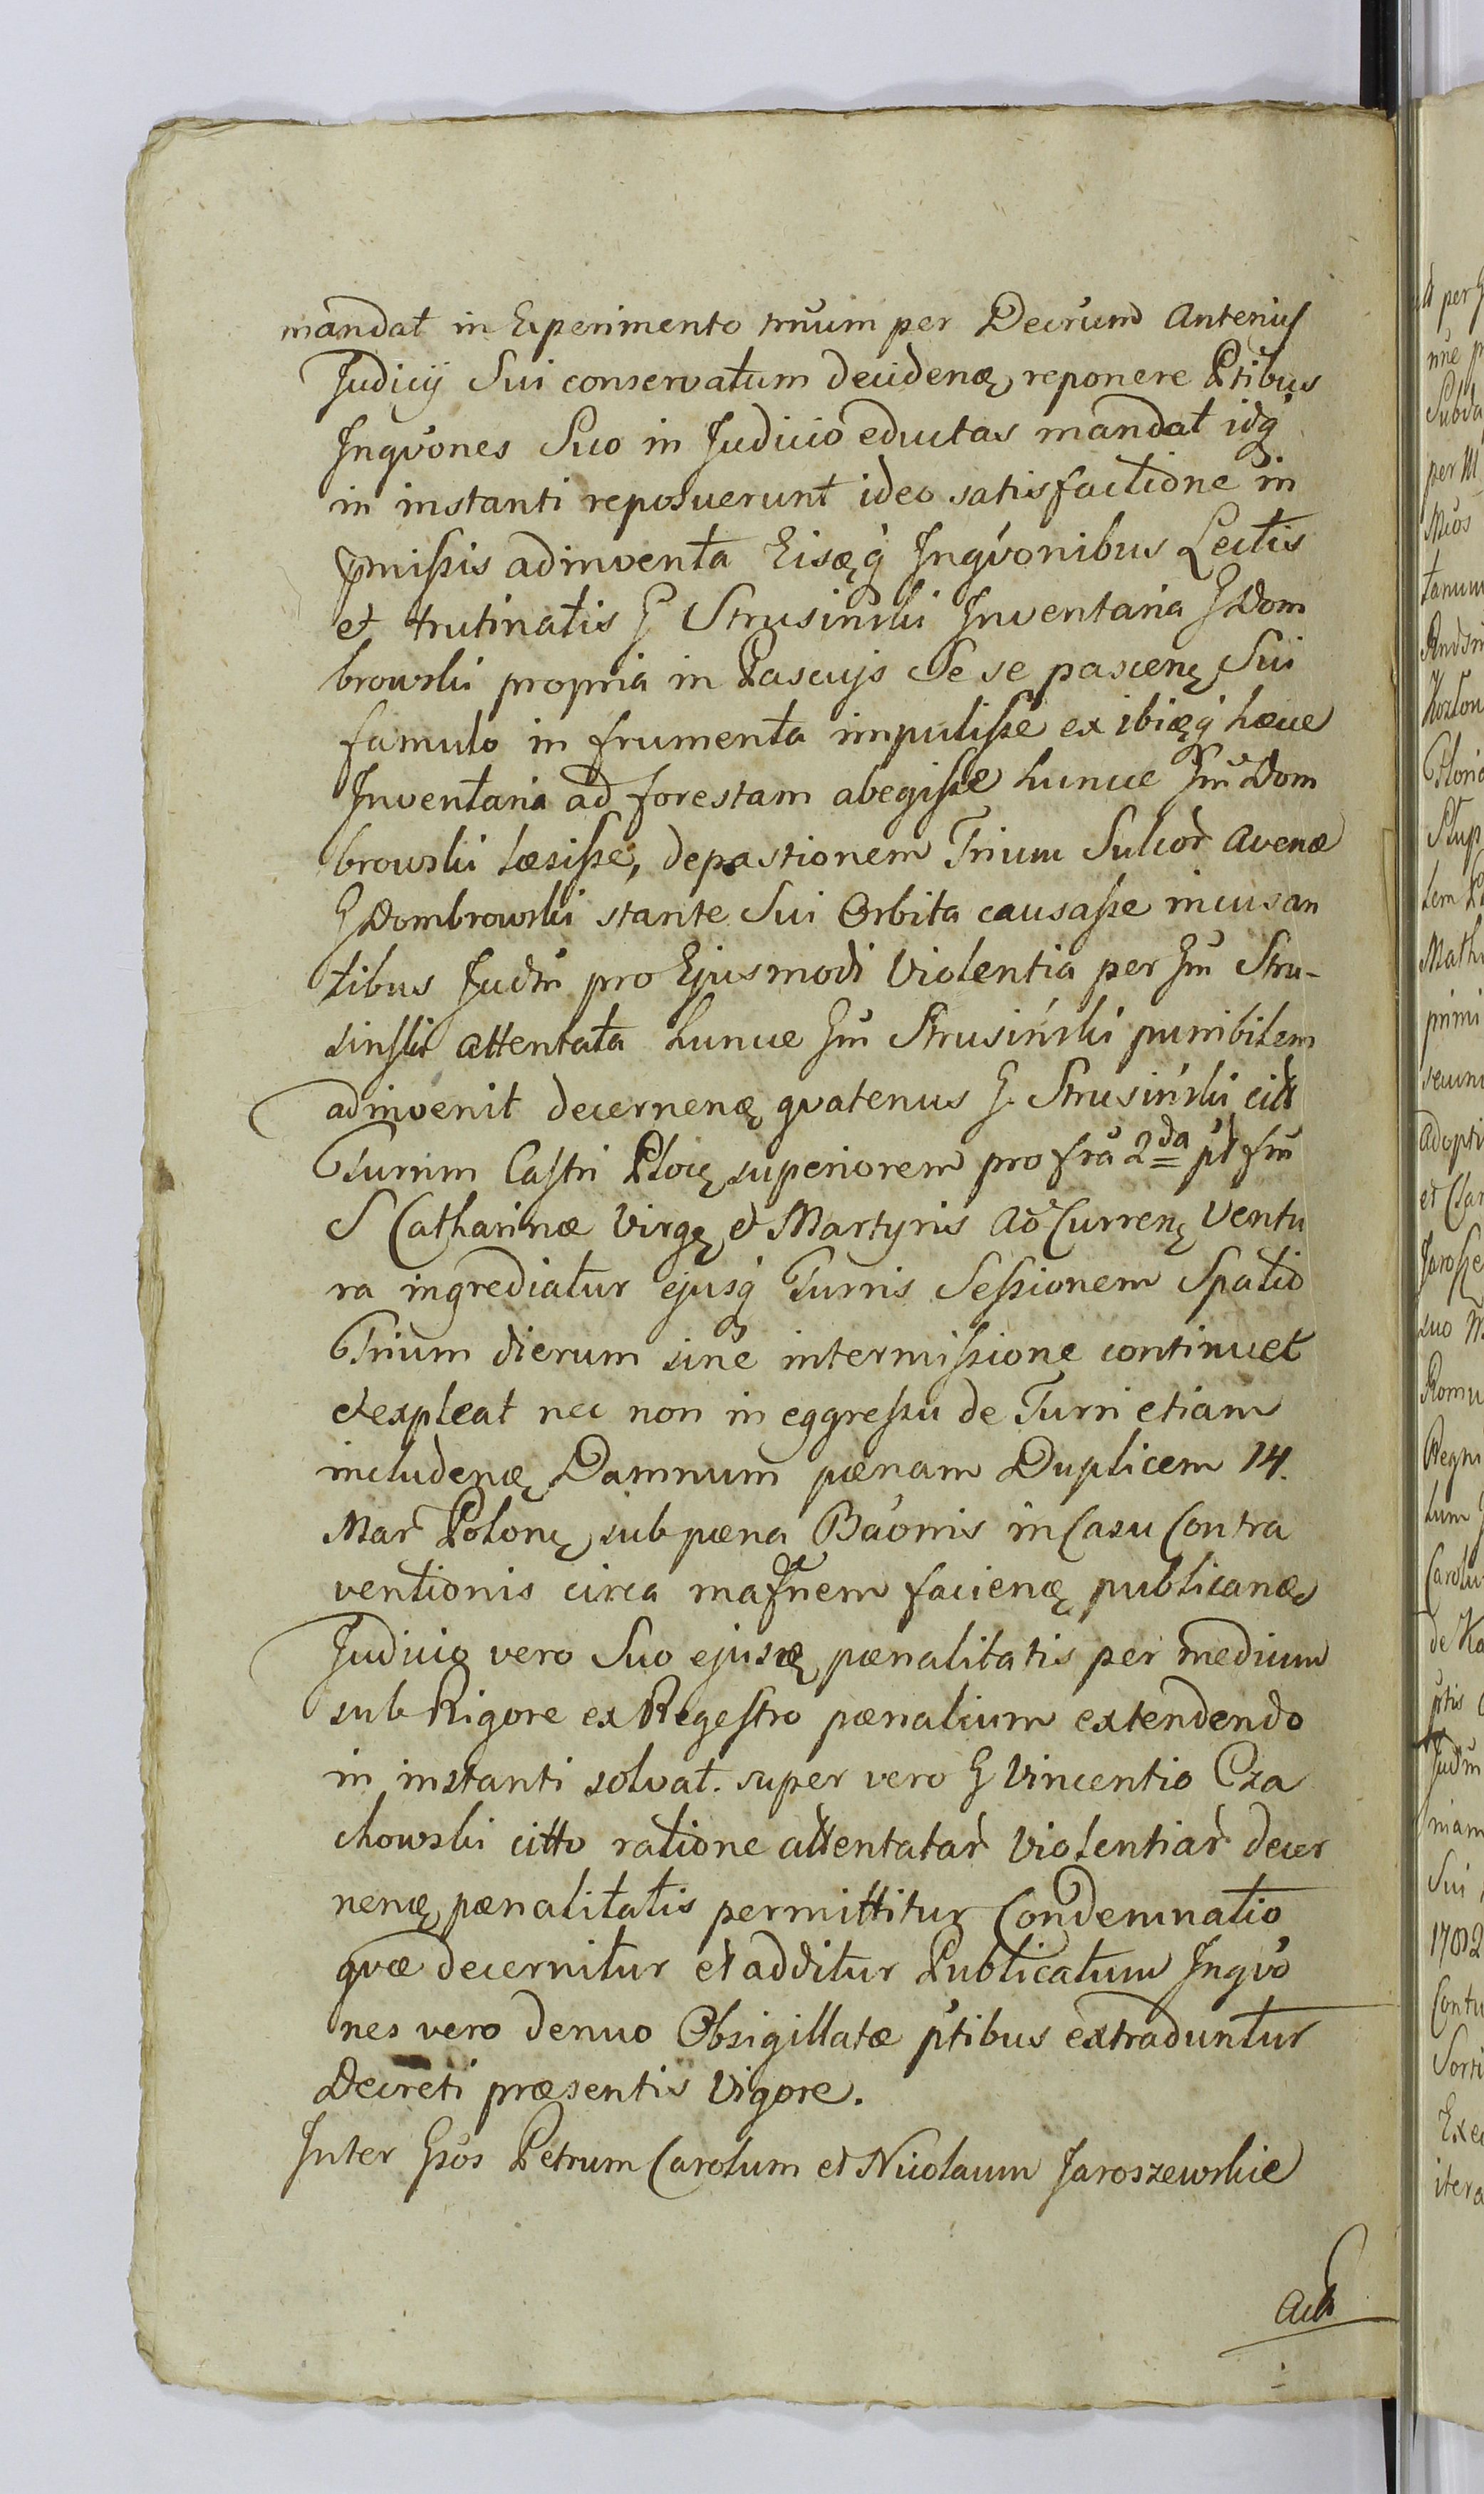 mandat in Experimento truum per Decrum Anterius
Judicij Sui conservatum decidenꝫ reponere Ptibus
Inqvones Suo in Judicio eductas mandat idq
in instanti reposuerunt ideo satisfactione in
pmissis adinventa Eisqꝫ Inqvonibus Lectis
et trutinatis G Strusinski Inventaria G Dom
browski propria in Pascuijs Se se pascenꝫ Sui
famulo in frumenta impulisse ex ibiqꝫ hæce
Inventaria ad forestam abegisse hunce Gm Dom
browski læsisse, depastionem Trium Sulcor avenæ
G Dombrowski stante Sui Orbita causasse incusan
tibus Judm pro Ejusmodi Violentia per Gm Stru-
sinski attentata hunce Gm Strusiński punibilem
adinvenit decernenꝫ qvatenus G. Strusiński citt
Turrim Castri Plocꝫ superiorem pro fra 2da pt fm
S Catharinæ Virgꝫ et Martyris Ao Currenꝫ Ventu
ra ingrediatur ejusq Turris Sessionem Spatio
Trium dierum sine intermissione continuet
et expleat nec non in eggressu de Turri etiam
includenꝫ Damnum pænam Duplicem 14.
Mar Polonꝫ sub pæna Baonis in Casu Contra
ventionis circa mafnem facienꝫ publicanꝫ
Judicio vero Suo ejusꝫ pænalitatis per medium
sub Rigore ex Regestro pænalium extendendo
in instanti solvat. super vero G Vincentio Cza
chowski citto ratione attentatar Violentiar decer
nenꝫ pænalitatis permittitur Condemnatio
qvæ decernitur et additur Publicatum Inqvo
nes vero denuo Obsigillatæ ptibus extraduntur
Decreti præsentis Vigore.
Inter Gsos Petrum Carolum et Nicolaum Jaroszewskie
Act